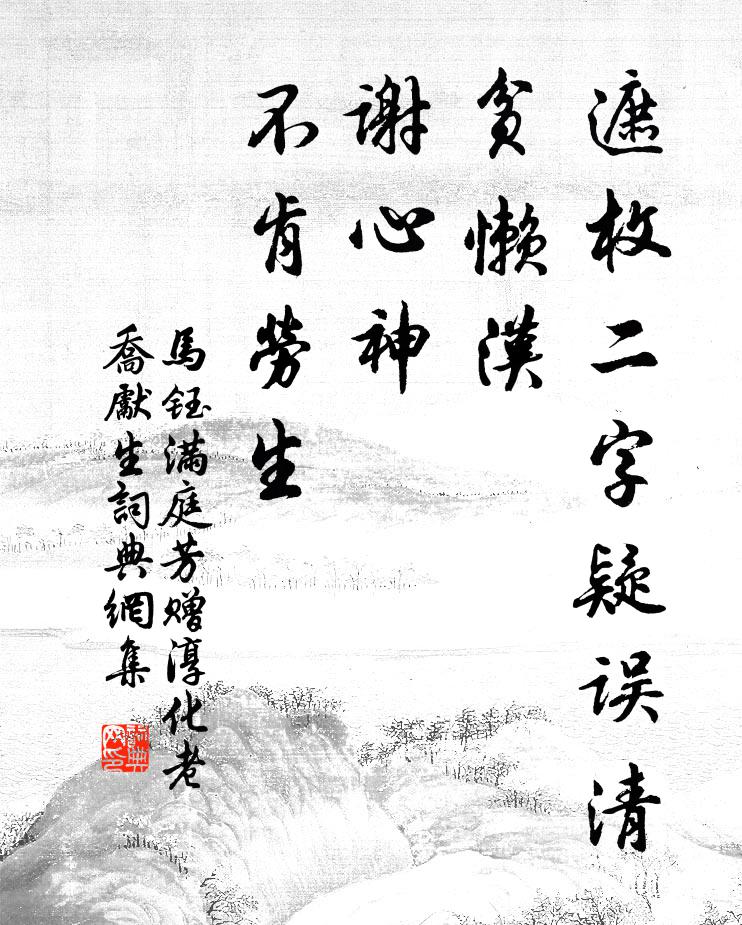 遮枚二字疑误清
贫懒汉
谢心神
不肯劳生
馬钰满庭芳赠淳化老
喬獻生詞典網集